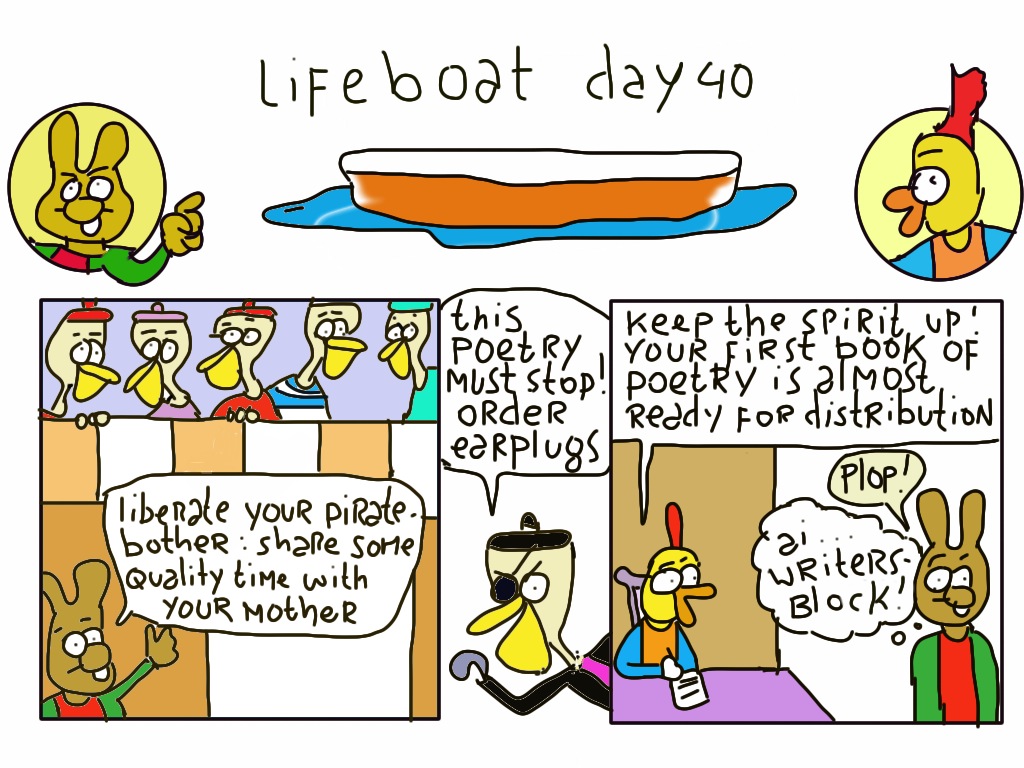 lifeboat day 40
liberate your pirate-
bother: share some
quality time with
your mother
this
poetry
must stop!
order
earplugs
keep the spirit up!
your first book of
poetry is almost
ready for distribution
Plop!
ai....
writers-
block!